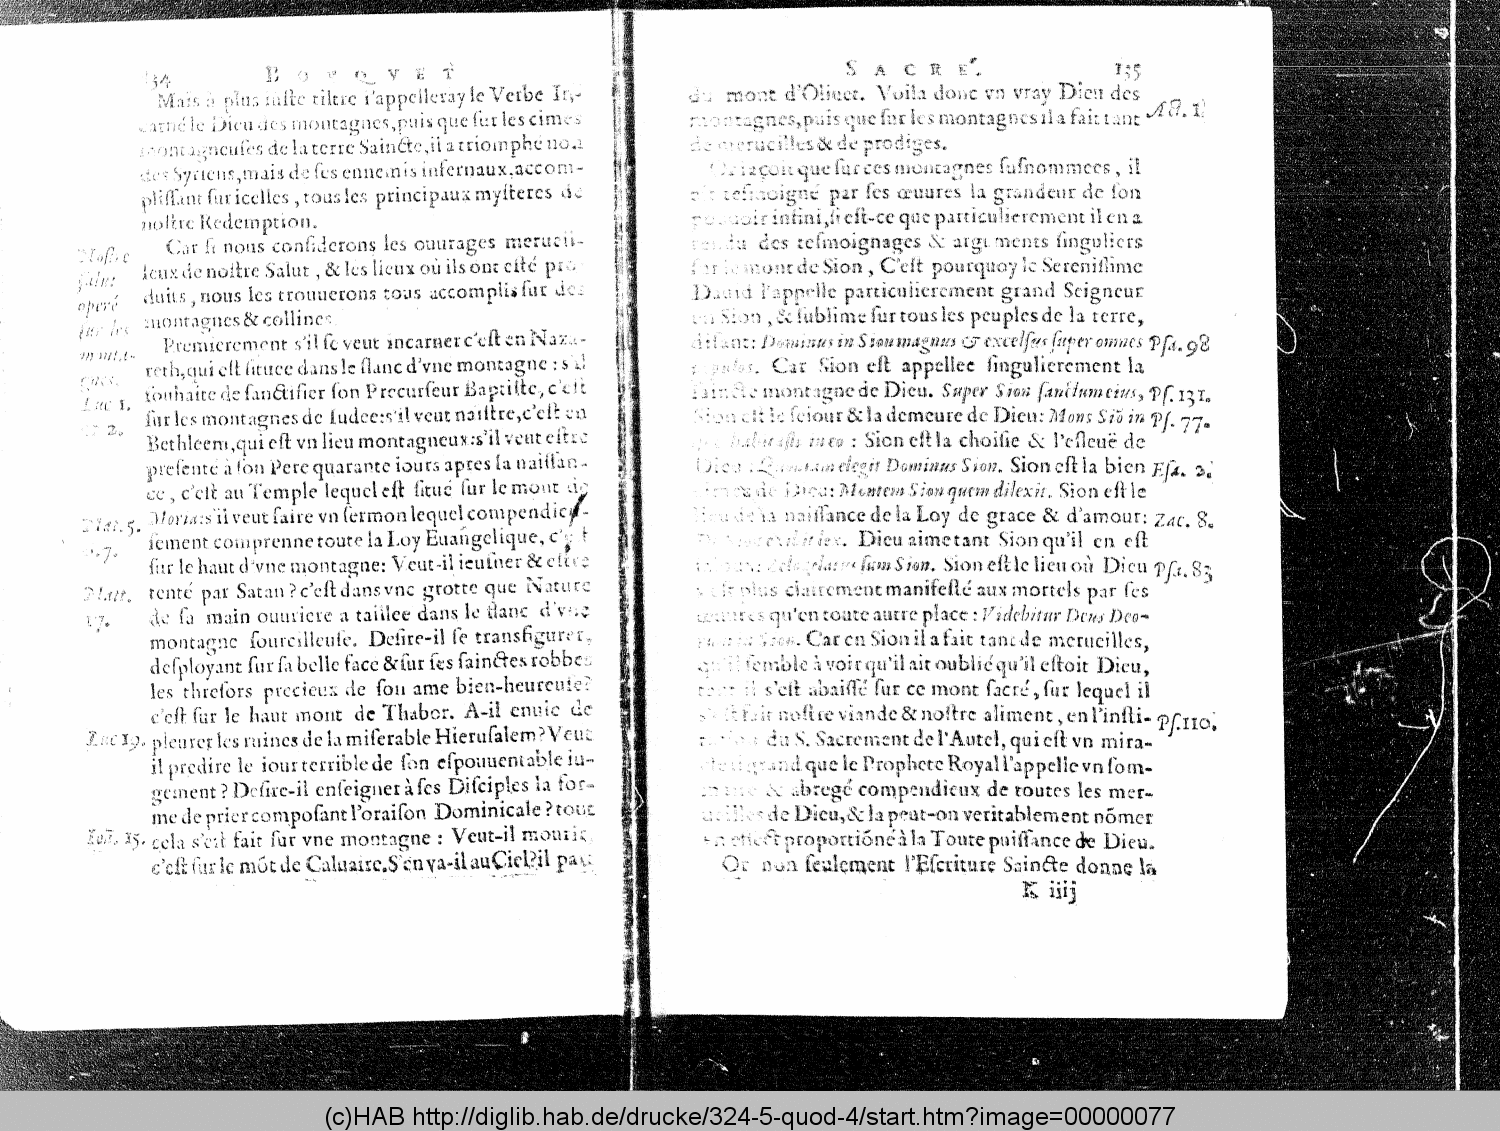 134 BOVQVET
Mais à plus iuste tiltre i'appelleray le Verbe In-
carné le Dieu des montagnes, puis que sur les cimes
montagneuses de la terre Saincte, il a triomphé non
des Syriens, mais de ses ennemis infernaux, accom-
plissant sur icelles, tous les principaux mysteres de
nostre Redemption.
Car si nous considerons les ouurages merueil-
leux de nostre Salut, & les lieux où ils ont esté pro-
duits, nous les trouuerons tous accomplis sur des
montagnes & collines
Premierement s'il se veut incarner c'est en Naza-
reth, qui est situee dans le flanc d'vne montagne: s'il
souhaite de sanctifier son Precurseur Baptiste, c'est
sur les montagnes de Iudee: s'il veut naistre, c'est en
Bethleem, qui est vn lieu montagneux: s'il veut estre
presenté à son Pere quarante iours apres sa naissan-
ce, c'est au Temple lequel est situé sur le mont de
Moria: s'il veut faire vn sermon lequel compendieu-
sement comprenne toute la Loy Euangelique, c'est
sur le haut d'vne montagne: Veut-il ieusner & estre
tenté par Satan? c'est dans vne grotte que Nature
de sa main ouuriere a taillee dans le flanc d'vne
montagne sourcilleuse. Desire-il se transfigurer,
desployant sur sa belle face & sur ses sainctes robbes
les thresors precieux de son ame bien-heureuse?
c'est sur le haut mont de Thabor. A-il enuie de
pleurer les ruines de la miserable Hierusalem? Veut
il predire le iour terrible de son espouuentable iu-
gement? Desire-il enseigner à ses Disciples la for-
me de prier composant l'oraison Dominicale? tout
cela s'est fait sur vne montagne: Veut-il mourir
c'est sur le mõt de Caluaire. S'en va-il au Ciel? il part
Nostre
salut
operé
sur les
montai-
gnes.
Luc 1.
2.
Mat. 5.
7.
Matt.
17.
Luc 19.
Ioã. 15.
SACRE'. 135
du mont d'Oliuet. Voila donc vn vray Dieu des
montagnes, puis que sur les montagnes il a fait tant
de merueilles & de prodiges.
Or iaçoit que sur ces montagnes susnommees, il
ait tesmoigné par ses œuures la grandeur de son
pouuoir infini, si est-ce que particulierement il en a
rendu des tesmoignages & argumens singuliers
sur le mont de Sion, C'est pourquoy le Serenissime
Dauid l'appelle particulierement grand Seigneur
en Sion, & sublime sur tous les peuples de la terre,
disant: Dominus in Sion magnus & excelsus super omnes
populos. Car Sion est appellee singulierement la
saincte montagne de Dieu. Super Sion sanctum eius,
Sion est le seiour & la demeure de Dieu: Mons Siõ in
quo habitasti in eo: Sion est la choisie & l'esleuë de
Dieu: Quoniam elegit Dominus Sion. Sion est la bien
aimee de Dieu: Montem Sion quem dilexit. Sion est le
lieu de la naissance de la Loy de grace & d'amour:
De Sion exibit lex. Dieu aime tant Sion qu'il en est
Zelo zelatus sum Sion. Sion est le lieu où Dieu
s'est plus clairement manifesté aux mortels par ses
œuures qu'en toute autre place: Videbitur Deus Deo-
rum in Sion. Car en Sion il a fait tant de merueilles,
qu'il semble à voir qu'il ait oublié qu'il estoit Dieu,
tant il s'est abaissé sur ce mont sacré, sur lequel il
s'est fait nostre viande & nostre aliment, en l'insti-
tution du S. Sacrement de l'Autel, qui est vn mira-
cle si grand que le Prophete Royal l'appelle vn som-
maire & abregé compendieux de toutes les mer-
ueilles de Dieu, & la peut-on veritablement nõmer
vn effect proportiõné à la Toute puissance de Dieu.
Or non seulement l'Escriture Saincte donne la
K iiij
Act. 1.
Psa. 98
Ps. 131.
Ps. 77.
Esa. 2.
Zac. 8.
Psa. 83
Ps. 110.
(c)HAB http://diglib.hab.de/drucke/324-5-quod-4/start.htm?image=00000077